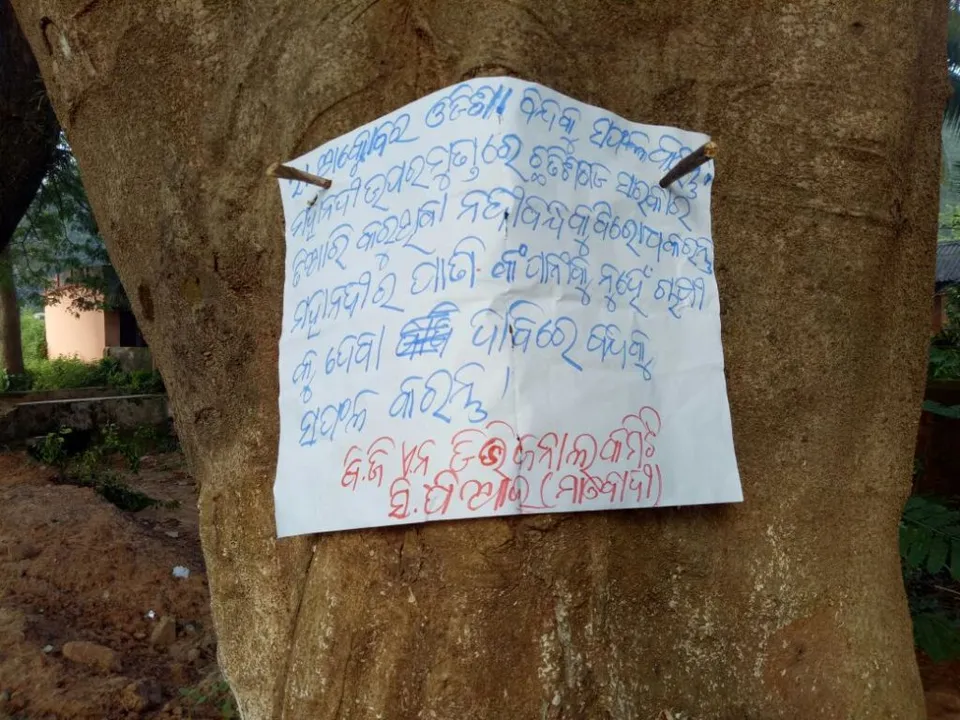 ୨୧ ଅକ୍ଟୋବର ଓଡିଶା ବନ୍ଦକୁ ସଫଳ
ମହାନଦୀ ଉପରମୁଣ୍ଡରେ ଛତିଶଗଡ ସରକାର
ତିଆରି କରୁଥିବା ନଦୀବନ୍ଧକୁ ବିରୋଧକରନ୍ତୁ
ମହାନଦୀର ପାଣି କଂପାନୀକୁ ନୁହେଁ ଚାଷୀ
କୁ ଦେବା ଦାବିରେ ବନ୍ଦକୁ
ସଫଳ କରନ୍ତୁ ।
ବି.ଜି ଏନ ଡିଭିଜନାଲ କମିଟି
ସି.ପିଆଇ (ମାଓବାଦୀ)